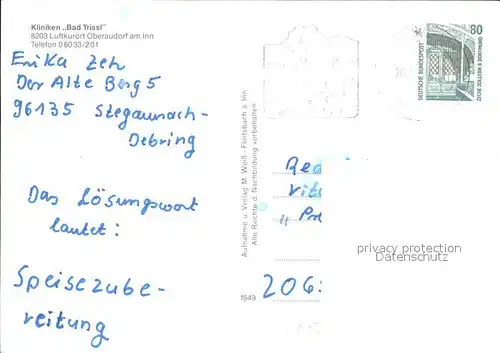 Kliniken „Bad Trissl"
8203 Luftkurort Oberaudorf am Inn
Telefon 08033/201
Erika Zeh
Der Alte Berg 5
96135 Stegaurach-
Debring
Das Lösungswort
lautet:
Speisezube-
reitung
Aufnahme u. Verlag M. Weiß - Flintsbach a. Inn
Alle Rechte d. Nachbildung vorbehalten
1549
DEUTSCHE BUNDESPOST
80
ZECHE ZOLLERN II DORTMUND
Red
Vit
„Pr
206
privacy protection
Datenschutz